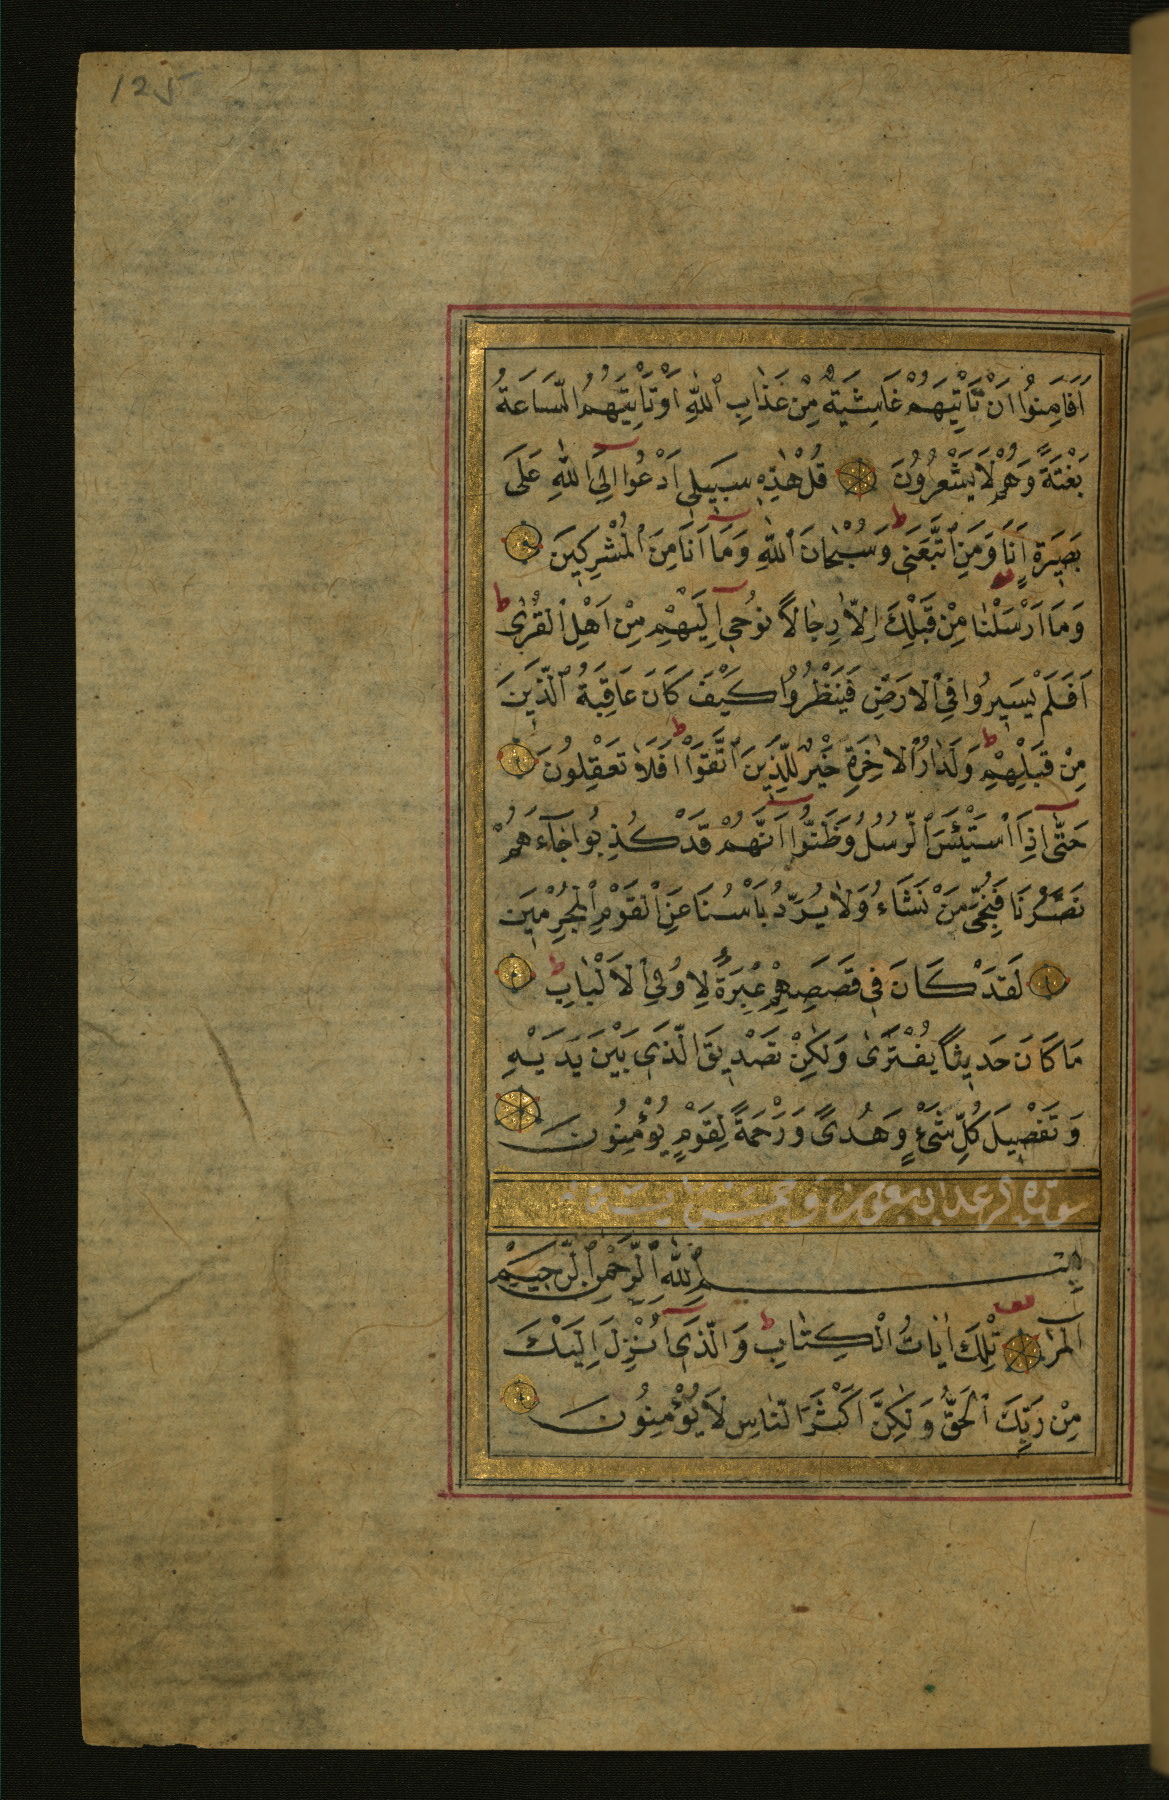 125
اَفَاَمِنُوا اَنْ تَاْتِيَهُمْ غَاشِيَةٌ مِنْ عَذَابِ ٱللّٰهِ اَوْ تَاْتِيَهُمُ السَّاعَةُ
بَغْتَةً وَهُمْ لَا يَشْعُرُونَ قُلْ هٰذِهِ سَبِيلِى اَدْعُوا اِلَى اللّٰهِ عَلَى
بَصِيرَةٍ اَنَا وَمَنِ ٱتَّبَعَنِى ط وَسُبْحَانَ ٱللّٰهِ وَمَآ اَنَا مِنَ ٱلْمُشْرِكِينَ
وَمَا اَرْسَلْنَا مِنْ قَبْلِكَ اِلَّا رِجَالًا نُوحِىٓ اِلَيْهِمْ مِنْ اَهْلِ ٱلْقُرٰى ط
اَفَلَمْ يَسِيرُوا فِى ٱلْاَرْضِ فَيَنْظُرُوا كَيْفَ كَانَ عَاقِبَةُ ٱلَّذِينَ
مِنْ قَبْلِهِمْ ط وَلَدَارُ ٱلْاٰخِرَةِ خَيْرٌ لِلَّذِينَ ٱتَّقَوْا ط اَفَلَا تَعْقِلُونَ
حَتّٰىٓ اِذَا ٱسْتَيْئَسَ ٱلرُّسُلُ وَظَنُّوٓا اَنَّهُمْ قَدْ كُذِبُوا جَآءَهُمْ
نَصْرُنَا فَنُجِّىَ مَنْ نَشَاءُ وَلَا يُرَدُّ بَاْسُنَا عَنِ ٱلْقَوْمِ ٱلْمُجْرِمِينَ
لَقَدْ كَانَ فِى قَصَصِهِمْ عِبْرَةٌ لِاُولِى ٱلْاَلْبَابِ ط
مَا كَانَ حَدِيثًا يُفْتَرٰى وَلٰكِنْ تَصْدِيقَ الَّذِى بَيْنَ يَدَيْهِ
وَتَفْصِيلَ كُلِّ شَىْءٍ وَهُدًى وَرَحْمَةً لِقَوْمٍ يُؤْمِنُونَ
سورة الرعد
بِسْمِ ٱللّٰهِ ٱلرَّحْمٰنِ ٱلرَّحِيمِ
الٓمٓرٰ تِلْكَ اٰيَاتُ الْكِتَابِ ط وَالَّذِىٓ اُنْزِلَ اِلَيْكَ
مِنْ رَبِّكَ ٱلْحَقُّ وَلٰكِنَّ اَكْثَرَ النَّاسِ لَا يُؤْمِنُونَ